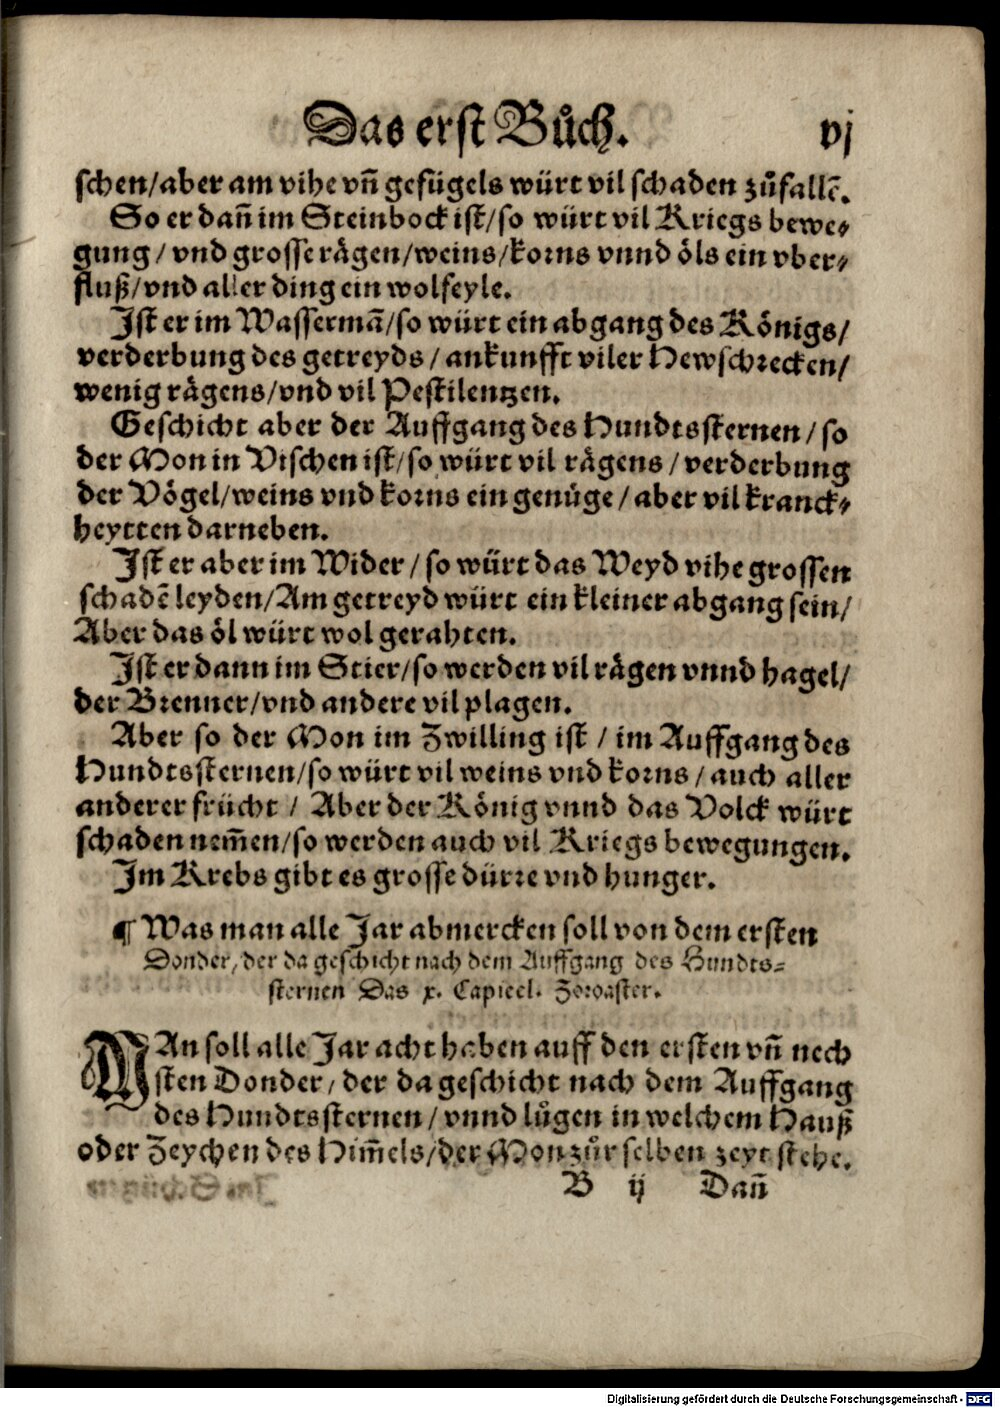 Das erst Bůch. vj
schen/aber am vihe vñ gefügels würt vil schaden zůfallẽ.
So er dañ im Steinbock ist/so würt vil Kriegs bewe-
gung/vnd grosse rägen/weins/korns vnnd öls ein vber-
fluß/vnd aller ding ein wolfeyle.
Ist er im Wassermã/so würt ein abgang des Königs/
verderbung des getreyds/ankunfft viler Hewschrecken/
wenig rägens/vnd vil Pestilentzen.
Geschicht aber der Auffgang des Hundtssternen/so
der Mon in Vischen ist/so würt vil rägens/verderbung
der Vögel/weins vnd korns ein genüge/aber vil kranck-
heytten darneben.
Ist er aber im Wider/so würt das Weyd vihe grossen
schadẽ leyden/Am getreyd würt ein kleiner abgang sein/
Aber das öl würt wol gerahten.
Ist er dann im Stier/so werden vil rägen vnnd hagel/
der Brenner/vnd andere vil plagen.
Aber so der Mon im Zwilling ist/im Auffgang des
Hundtssternen/so würt vil weins vnd korns/auch aller
anderer frücht/Aber der König vnnd das Volck würt
schaden nem̃en/so werden auch vil Kriegs bewegungen.
Im Krebs gibt es grosse dürre vnd hunger.
¶ Was man alle Jar abmercken soll von dem ersten
Donder, der da geschicht nach dem Auffgang des Hundts-
sternen Das x. Capitel. Zoroaster.
MAn soll alle Jar acht haben auff den ersten vñ nech
sten Donder, der da geschicht nach dem Auffgang
des Hundtssternen/vnnd lůgen in welchem Hauß
oder Zeychen des Him̃els/der Mon zůr selben zeyt stehe.
B ij Dañ
Digitalisierung gefördert durch die Deutsche Forschungsgemeinschaft - DFG